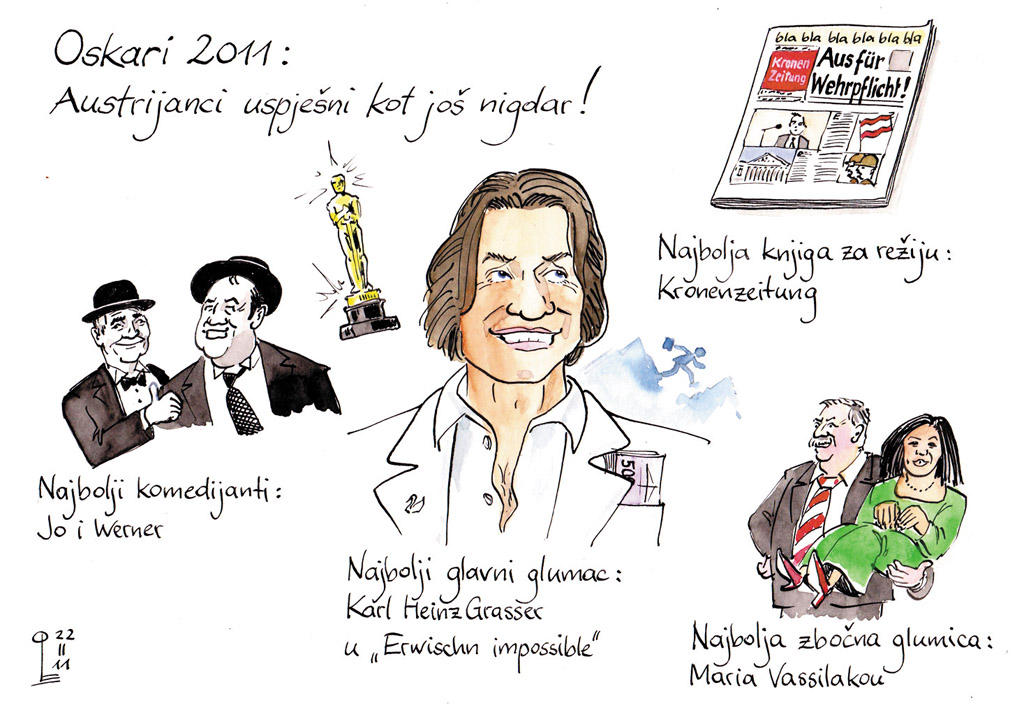 Oskari 2011:
Austrijanci uspješni kot još nigdar!
bla bla bla bla bla bla
Kronen
Zeitung
Aus für
Wehrpflicht!
Najbolja knjiga za režiju:
Kronenzeitung
Najbolji komedijanti:
Jo i Werner
500
Najbolji glavni glumac:
Karl Heinz Grasser
u „Erwischn impossible“
Najbolja zbočna glumica:
Maria Vassilakou
22
II
11